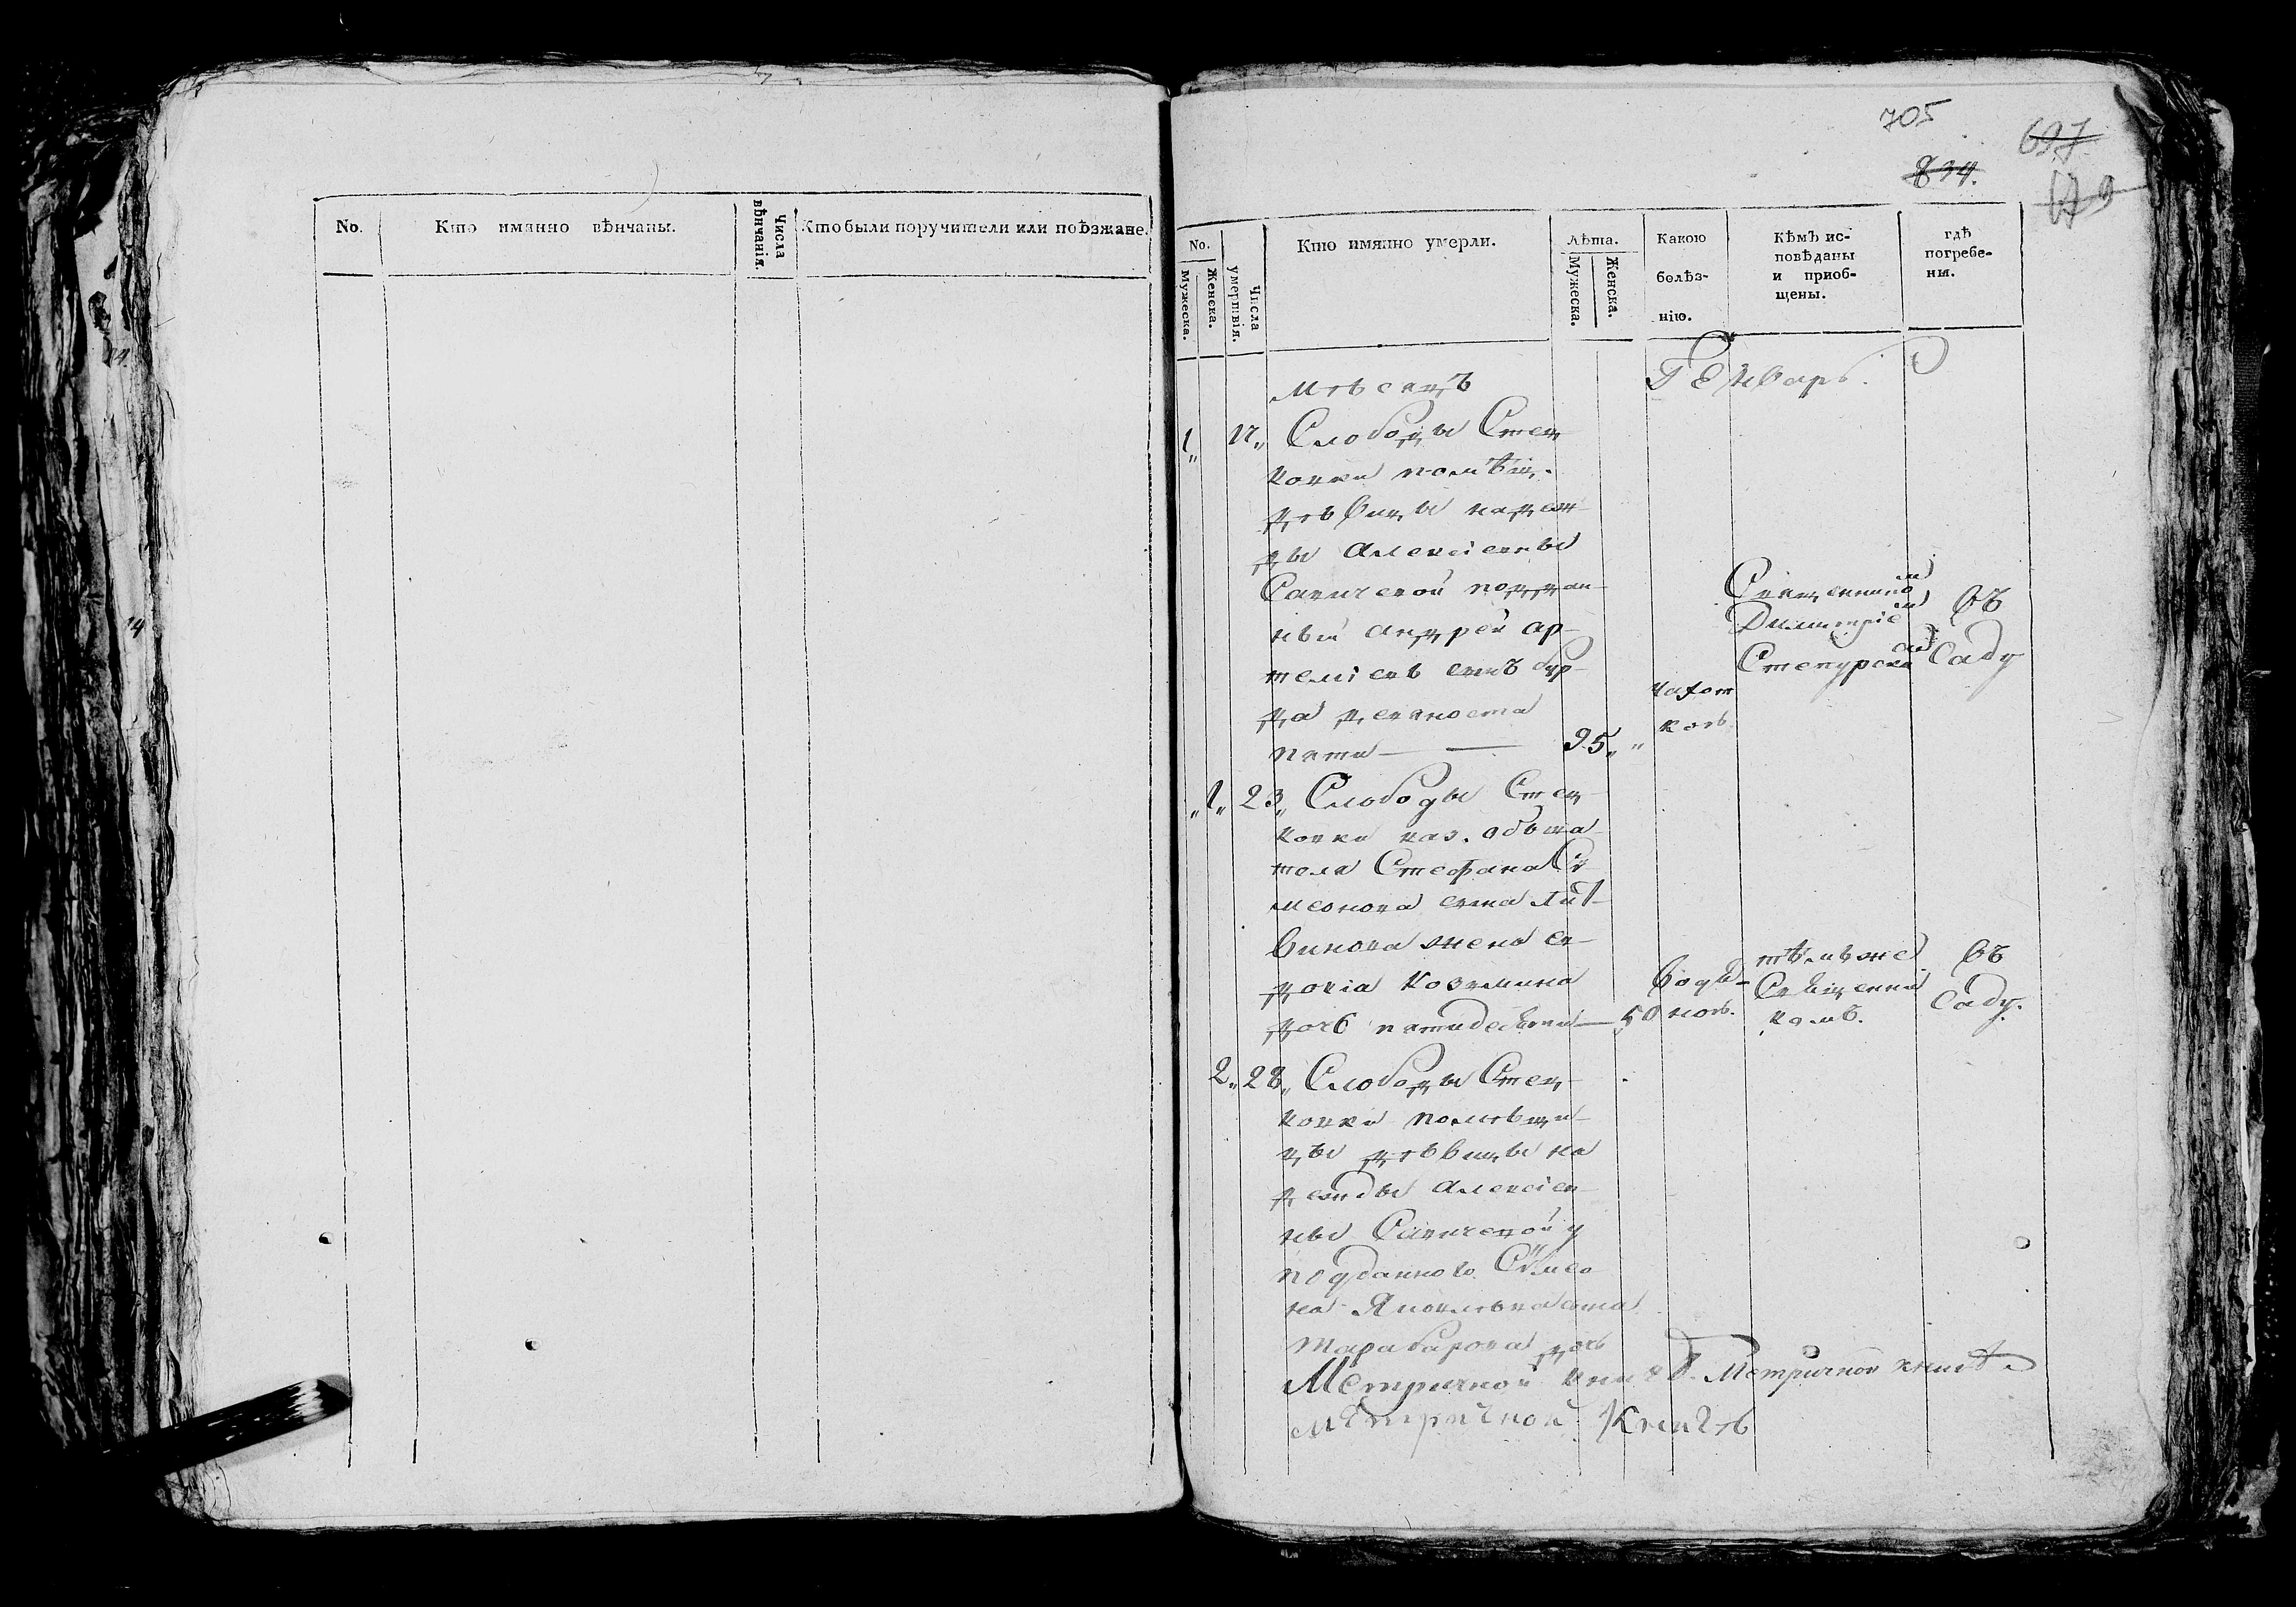 No.
Кто имянно вѣнчаны.
Числа вѣнчанія.
Кто были поручители или поѣзжане.
705
697
834.
No.
Мужеска.
Женска.
Числа умертвія.
Кто имянно умерли.
Лѣта.
Мужеска.
Женска.
Какою болѣз-
нію.
Кѣмъ ис-
повѣданы
и приоб-
щены.
гдѣ
погребе-
ны.
Мѣсяцъ Генварь.
1„ 17„ Слободы Стец-
ковки помѣщ.
дѣвицы надеж-
ды Алексіевны
Савичевой поддан-
ный андрей ар-
теміевъ сынъ
да девяноста
пяти — — 95„ „
чахот
кою
Священнико м
Димитріе м
Степурски м
въ
Саду
„ 1„ 23„ Слободы Стец-
ковки каз. обыва-
теля Стефана Си
меонова сына Лит-
винова жена ев-
докіа Козьмина
дочь пятидесяти — 50
водя-
ною.
тѣмъ же
Священни
комъ.
въ
Саду.
2„ 28„ Слободы Стец-
ковки помѣщи-
цы дѣвицы на
дежды Алексіев-
ны Савичевой у
подданного Симео
на Яковлева сына
Тарабарова дочь
Метричной книгѣ. Метричной книгѣ
метричной Книгѣ